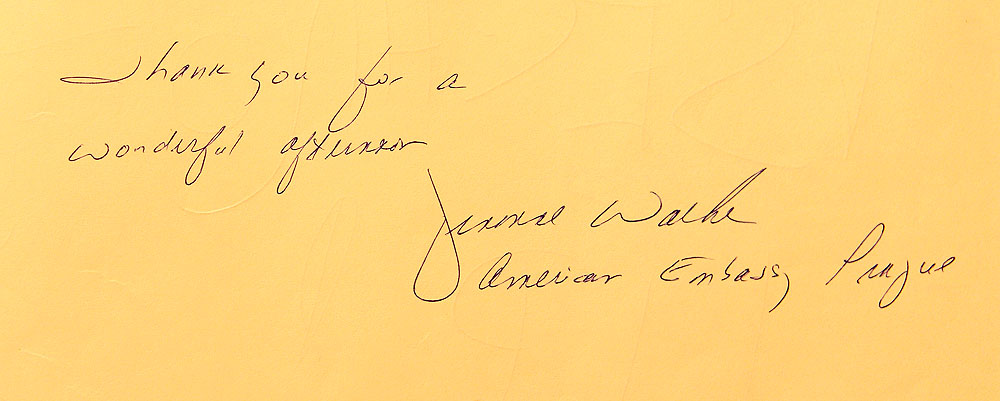 Thank you for a
wonderful afternoon
Walke
American Embassy Prague